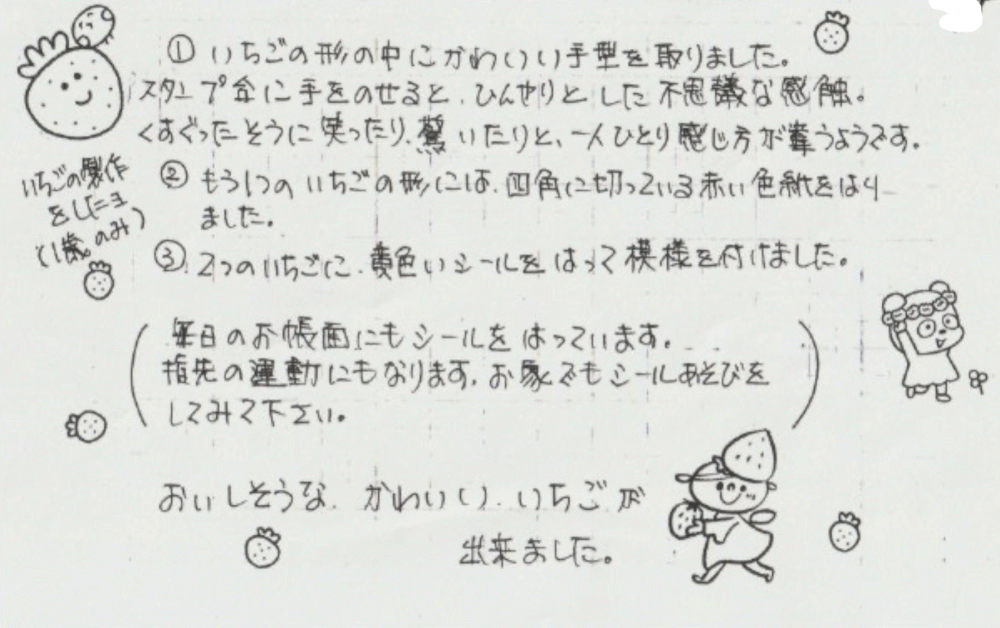 ① いちごの形の中にかわいい手型を取りました。
スタンプ台に手をのせると、ひんやりとした不思議な感触。
くすぐったそうに笑ったり、驚いたりと、一人ひとり感じ方が違うようです。
いちごの製作
をしたヨ
(1歳のみ)
② もう1つのいちごの形には、四角に切っている赤い色紙をはり
ました。
③ 2つのいちごに、黄色いシールをはって模様を付けました。
毎日のお帳面にもシールをはっています。
指先の運動にもなります。お家でもシールあそびを
してみて下さい。
おいしそうな、かわいい、いちごが
出来ました。